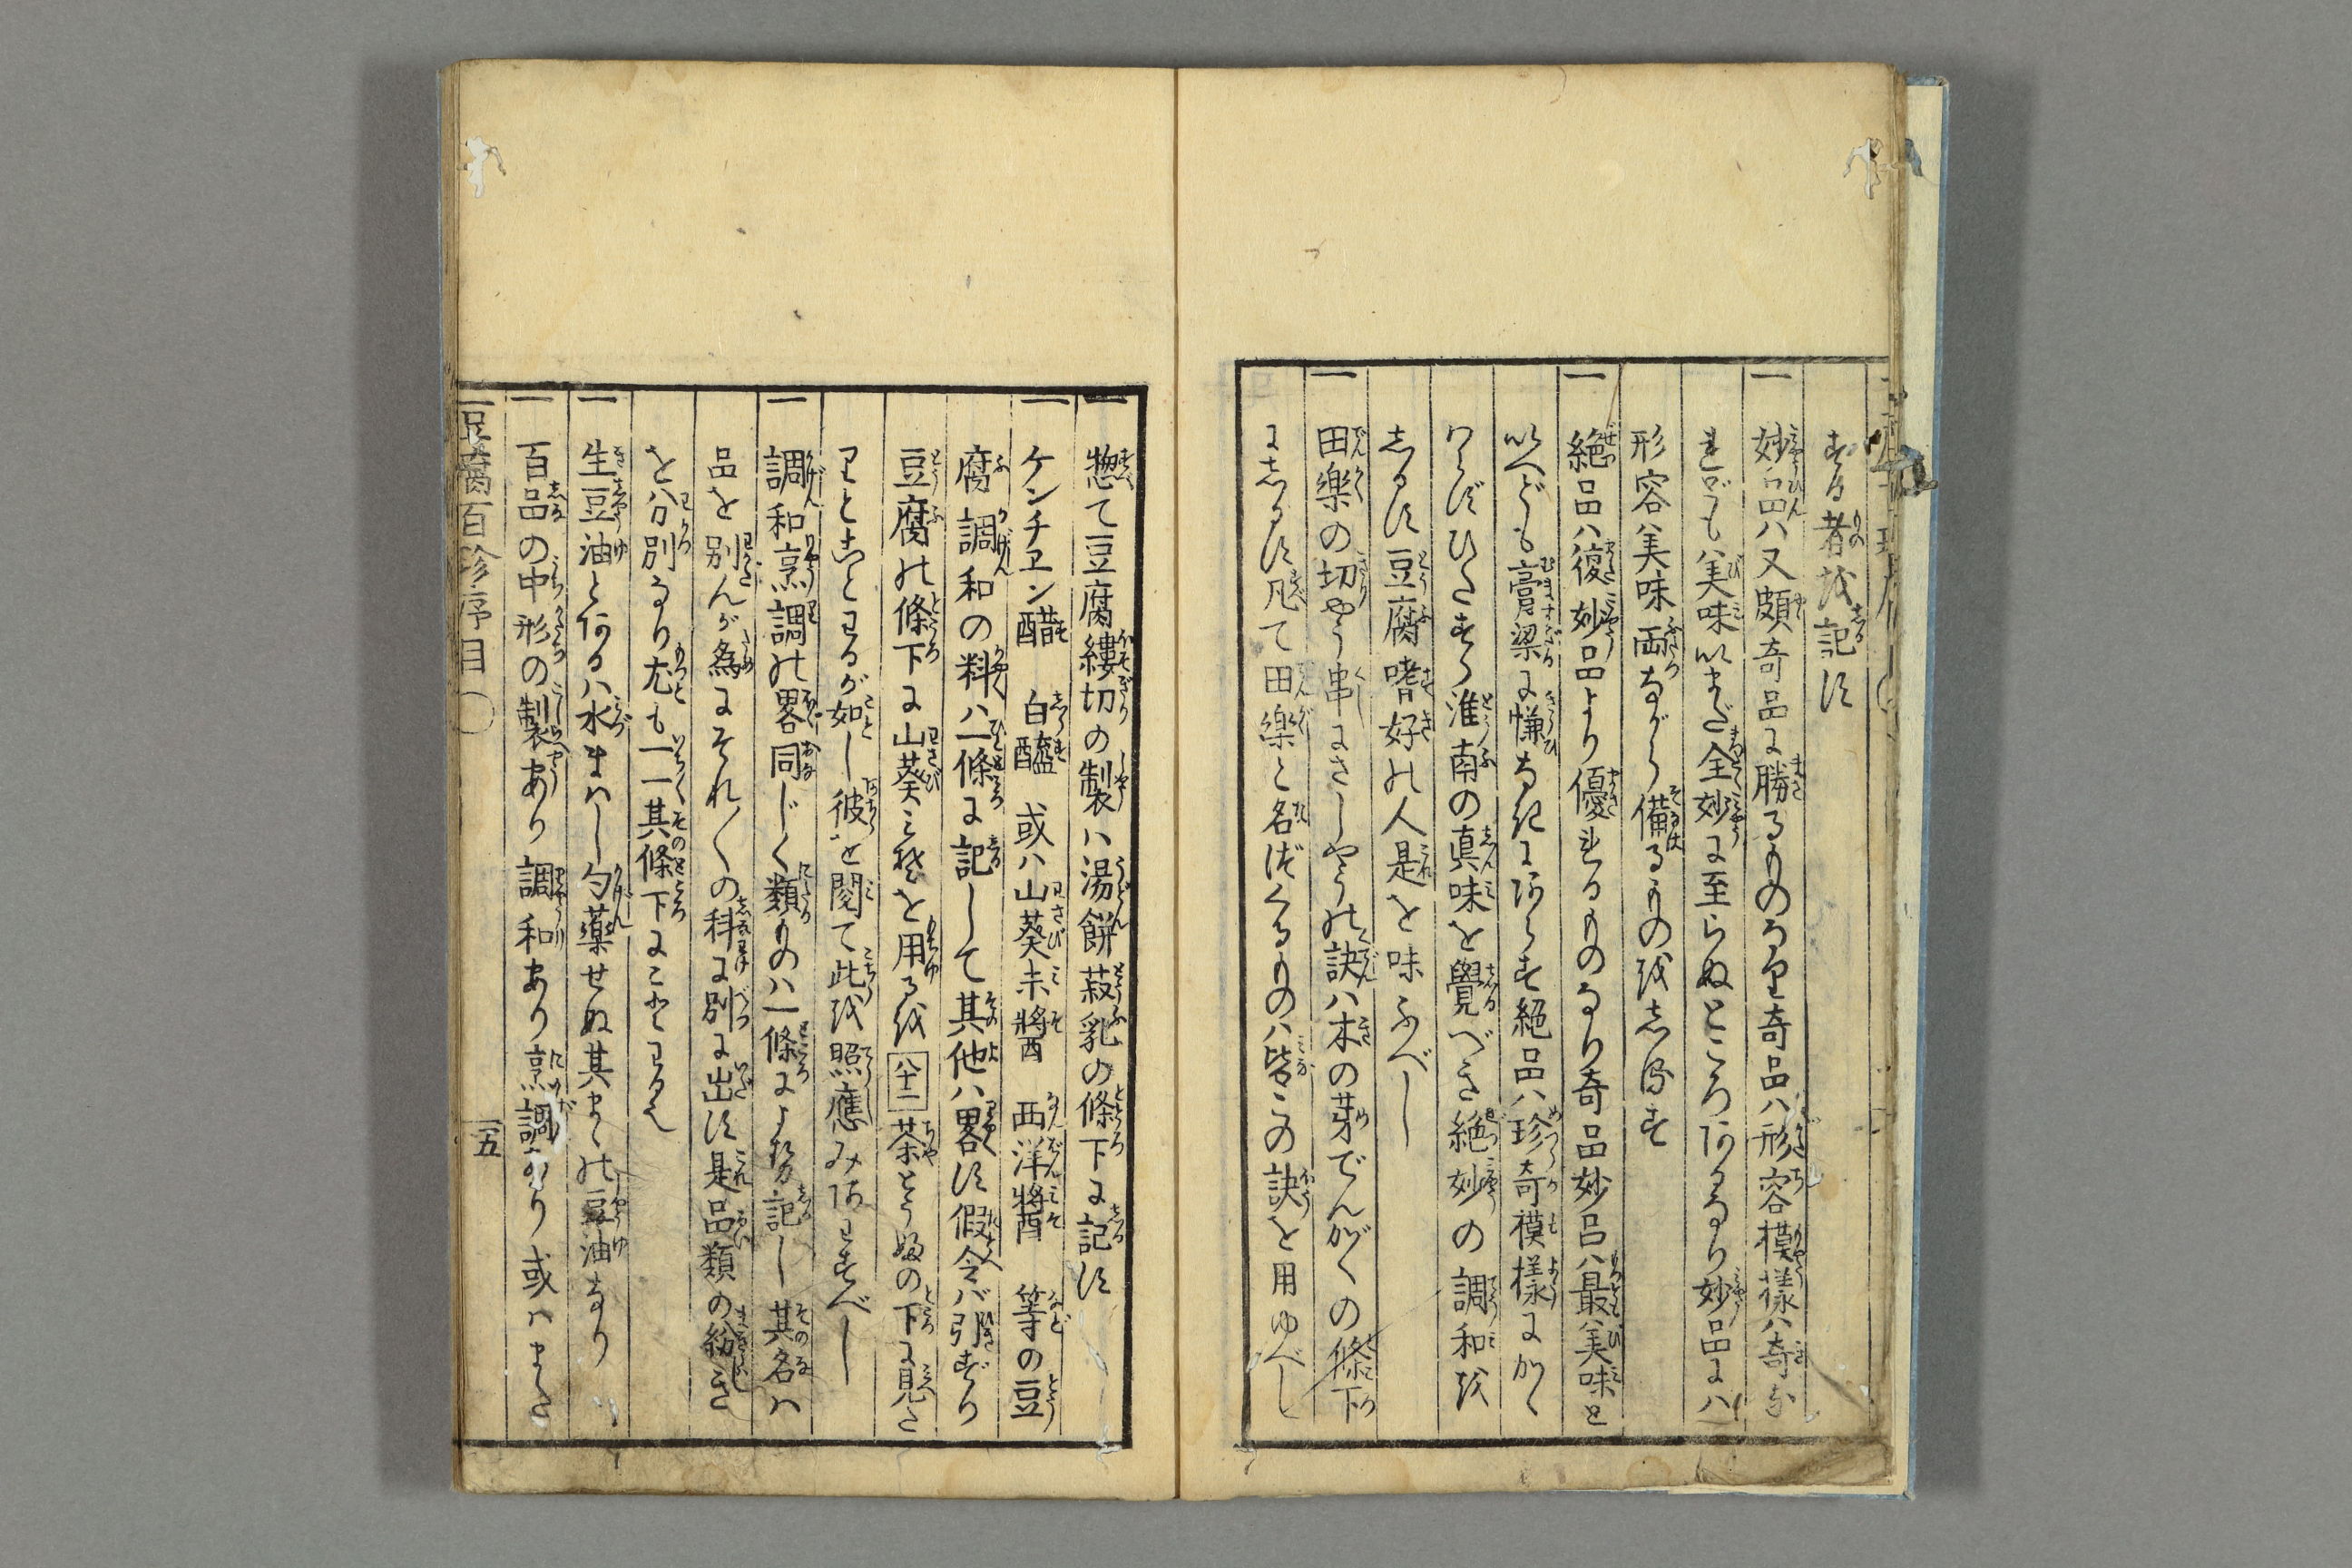 する者を記す
一 妙品ハ又頗奇品に勝るものなり奇品ハ形容模様ハ奇な
れども美味いまだ全妙に至らぬところあるなり妙品にハ
形容美味両ながら備るものをしるす
一 絶品ハ復妙品より優れるものなり奇品妙品ハ最美味と
いへども膏粱に慊ひなきにあらず絶品ハ珍奇模様にかゝ
わらずひたすら淮南の真味を覺べき絶妙の調和を
しるす豆腐嗜好の人是を味ふべし
一 田樂の切やう串にさしやうの訣ハ木の芽でんがくの條下
にしるす凡て田樂と名づくるものハ皆この訣を用ゆべし
一 惣て豆腐縷切の製ハ湯餅菽乳の條下に記す
一 ケンチヱン醋 白醯 或ハ山葵未醤 西洋醤 等の豆
腐調和の料ハ一條に記して其他ハ畧す假令バ引ずり
豆腐の條下に山葵みそを用るを 八十二 茶とうふの下に見え
りとことわるが如し彼を閲て此を照應みあわすべし
一 調和烹調の畧同じく類ものハ一條によせ記し其名ハ
品を別んが為にそれ〱の科に別に出す是品類の紛き
を分別なり尤も一一其條下にことわる也
一 生豆油とあるハ水まハし勺薬せぬ其まゝの豆油なり
一 百品の中形の製あり調和あり烹調あり或ハまた
豆腐百珍序目
五